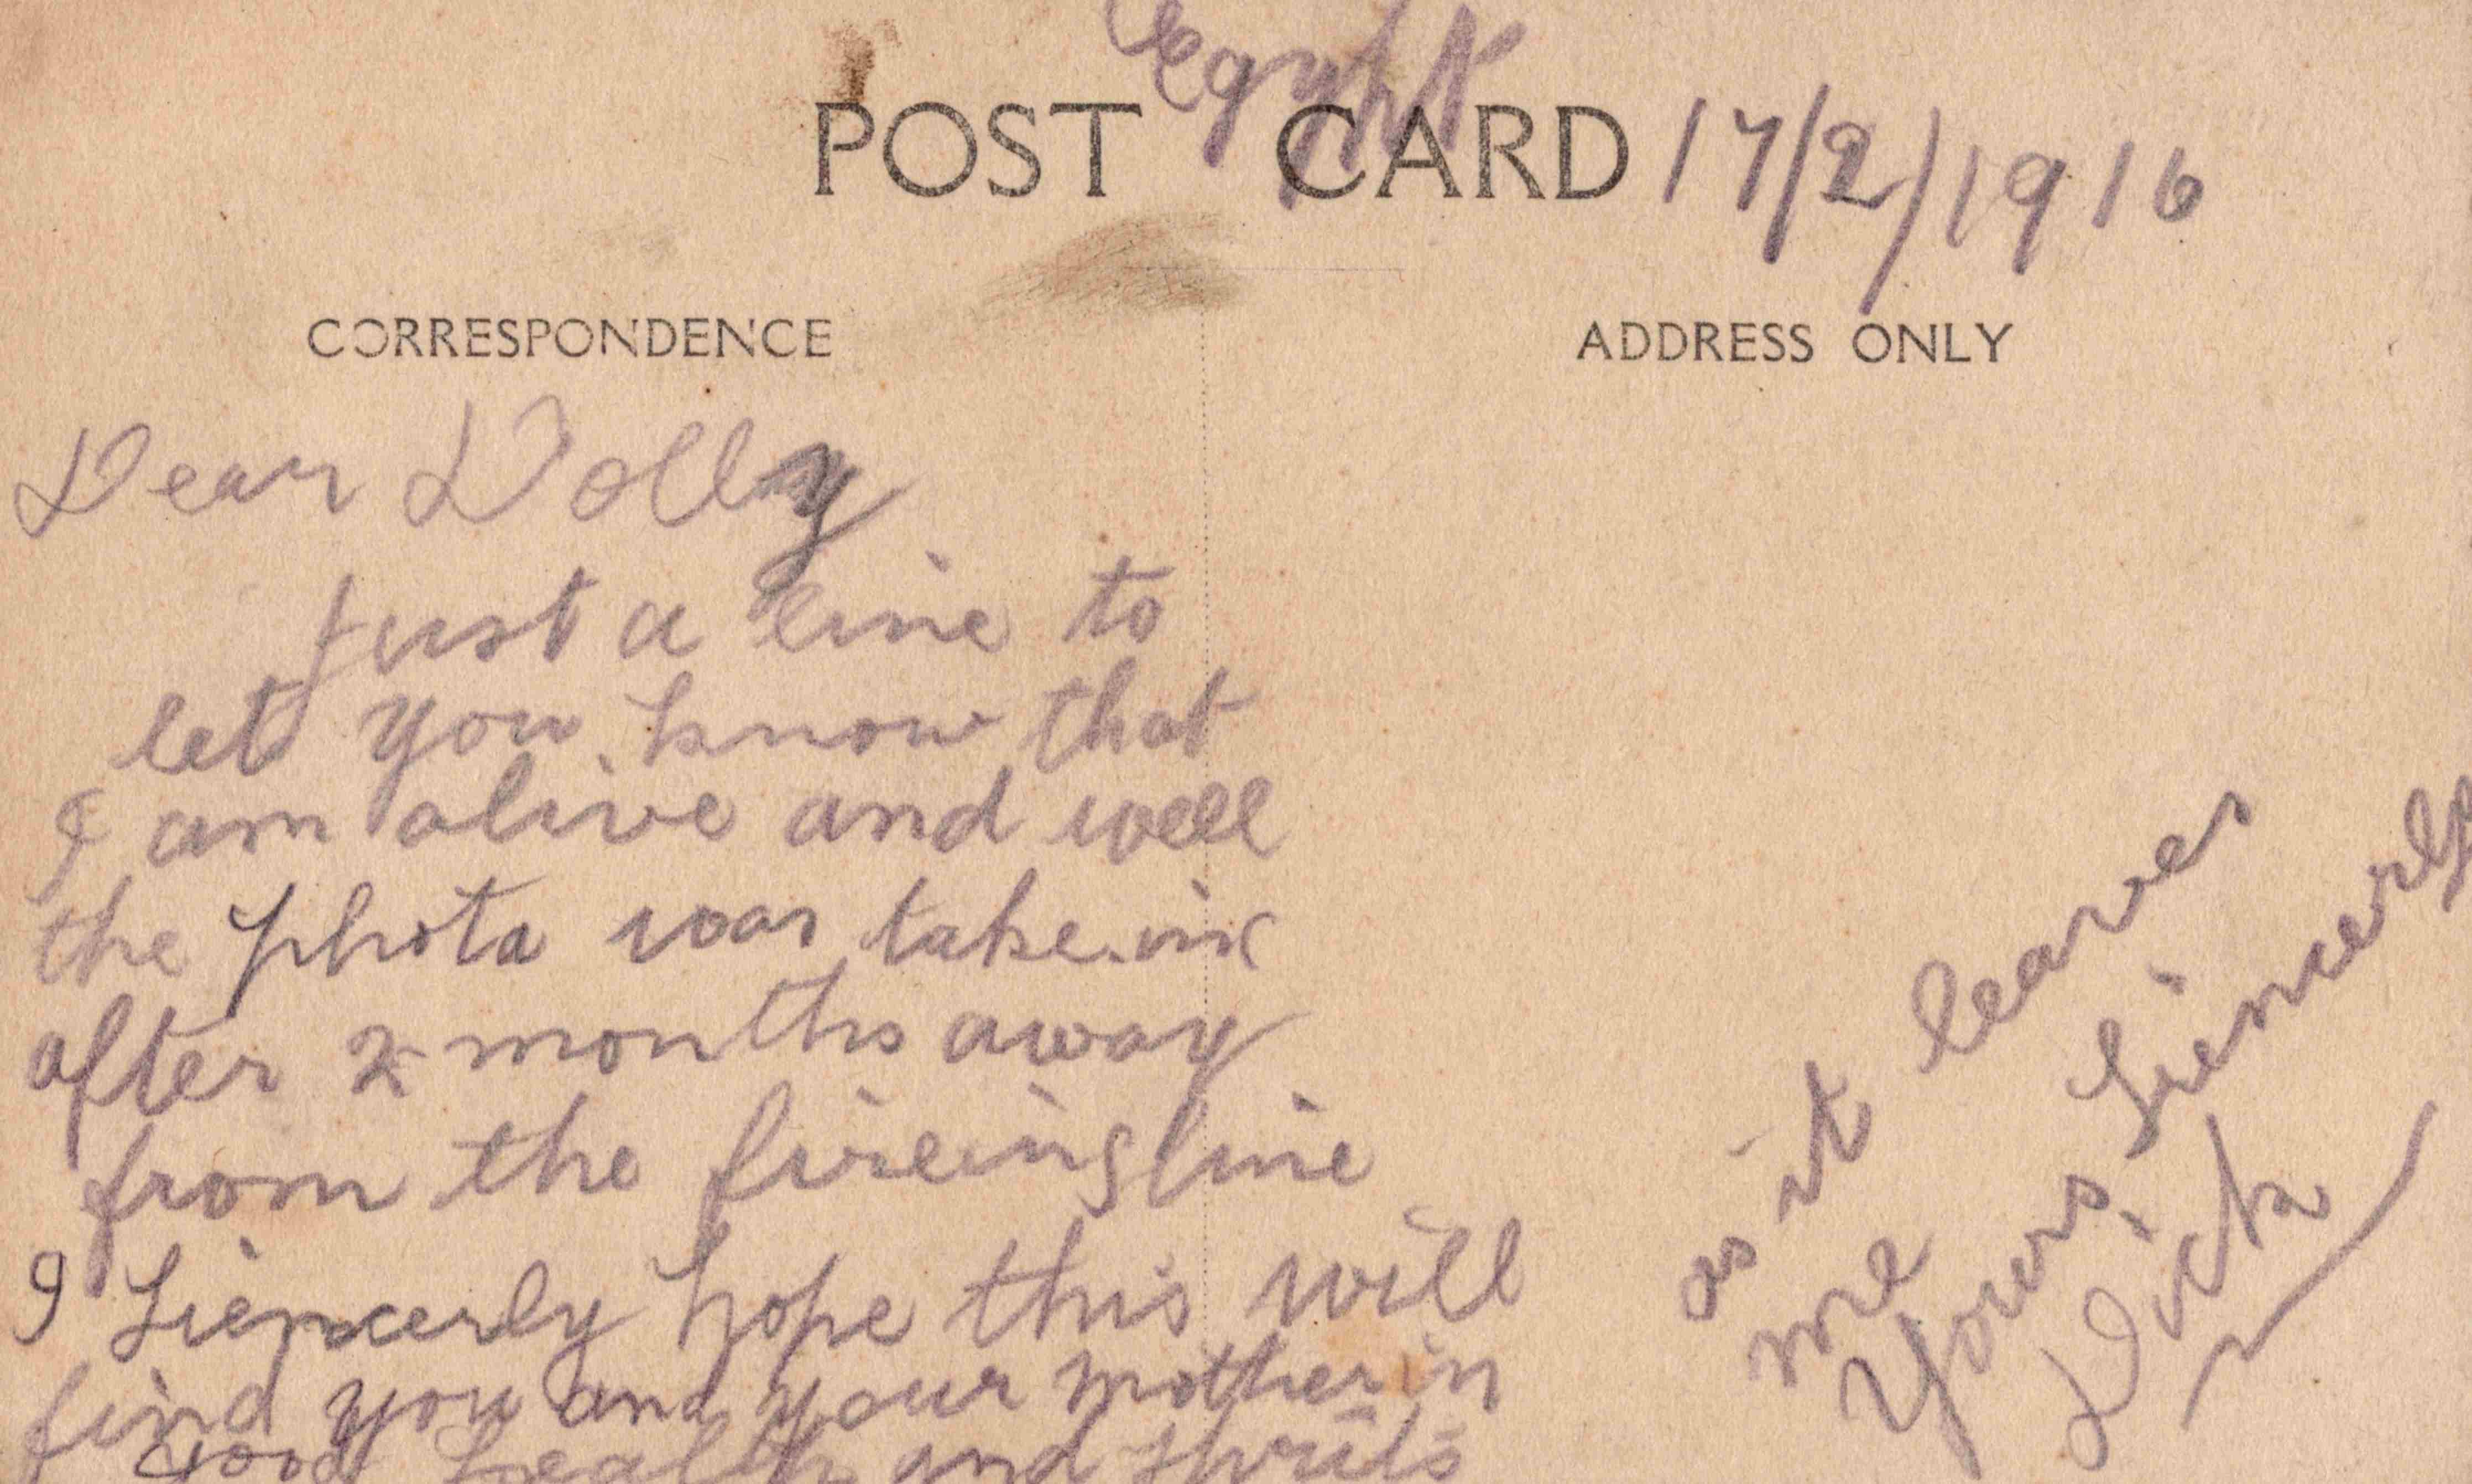 Egypt
POST CARD 17/2/1916
CORRESPONDENCE
ADDRESS ONLY
Dear Dolly
just a line to
let you know that
I am alive and well
the photo was take in
after 2 months away
from the fireing line
I Siencerly hope this will
find you and your mother in
Good health and spirits
as it leaves
me
Yours Siencerly
Dick